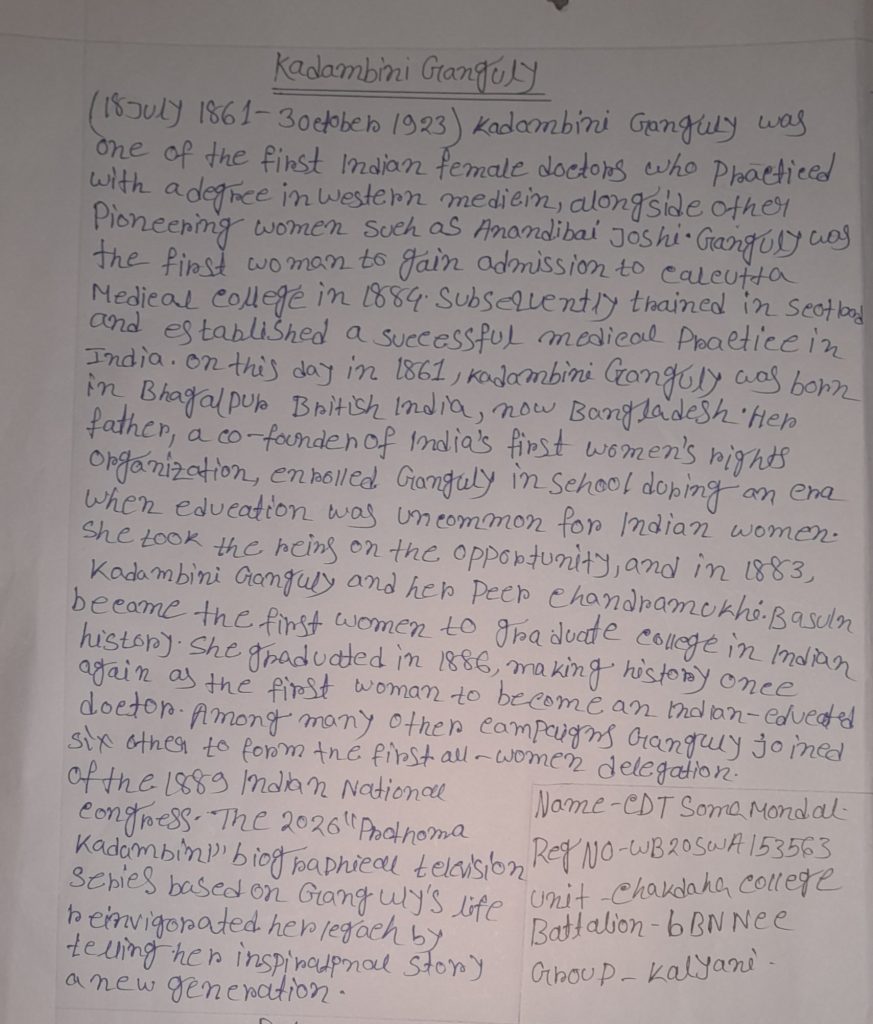 Kadambini Ganguly
(18 July 1861 - 3 october 1923) Kadambini Ganguly was
one of the first Indian female doctors who Practiced
with a degree in western medicin, alongside other
Pioneering women such as Anandibai Joshi. Ganguly was
the first woman to gain admission to calcutta
Medical college in 1884. Subsequently trained in Scotland
and established a successful medical Practice in
India. on this day in 1861, Kadambini Ganguly was born
in Bhagalpur British India, now Bangladesh. Her
father, a co-founder of India's first women's rights
organization, enrolled Ganguly in school during an era
when education was uncommon for Indian women.
She took the reins on the opportunity, and in 1883,
Kadambini Ganguly and her Peer Chandramukhi Basuln
became the first women to graduate college in Indian
history. She graduated in 1886, making history once
again as the first woman to become an Indian-educated
doctor. Among many other campaigns Ganguly joined
six other to form the first all-women delegation.
of the 1889 Indian National
congress. The 2020 "Prothoma
Kadambini" biographical television
series based on Ganguly's life
reinvigorated her legach by
telling her inspirational story
a new generation.
Name - CDT Soma Mondal
Reg NO - WB20SWA153563
Unit - Chakdaha college
Battalion - 6BN Ncc
Group - Kalyani.